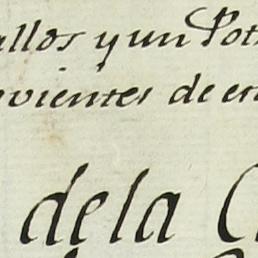 allos y un Pot
vientes de es
de la C